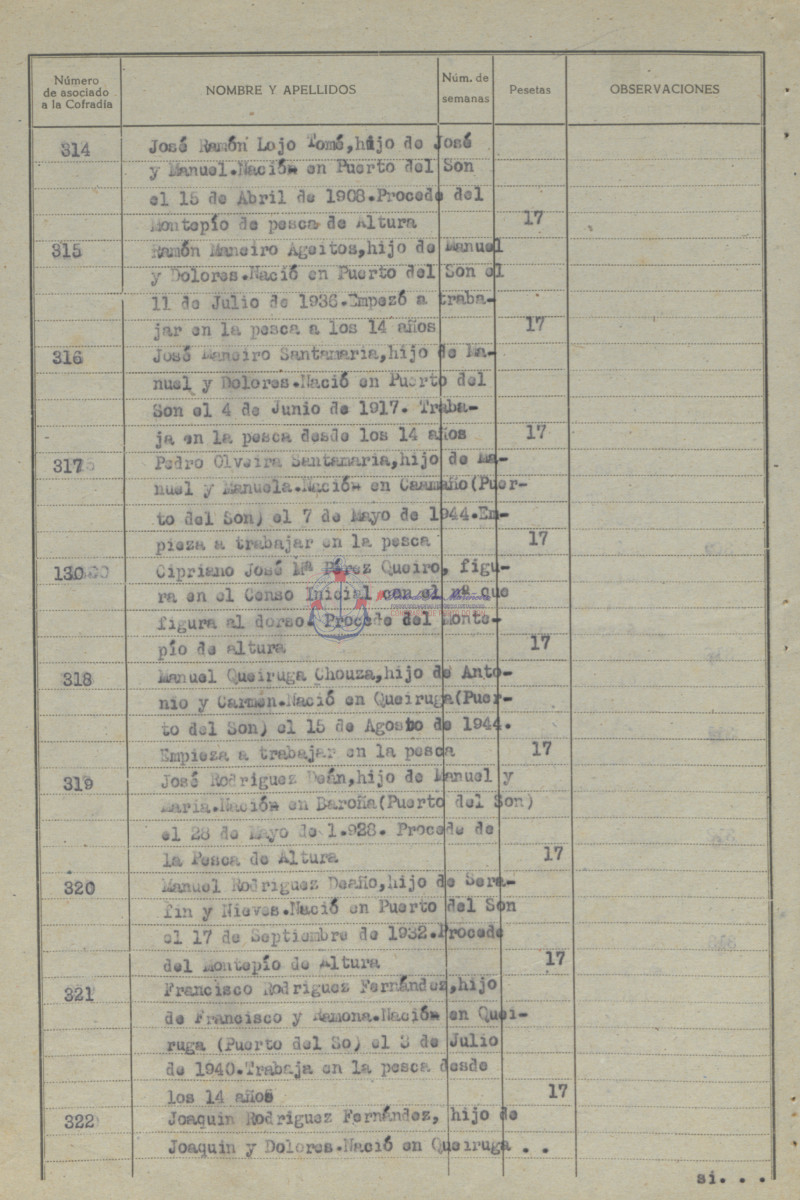 Número de asociado a la Cofradía NOMBRE Y APELLIDOS Núm. de semanas Pesetas OBSERVACIONES
314 José Ramón Lojo Tomé,hijo de José
y Manuel.Nación en Puerto del Son
el 15 de Abril de 1908.Procede del
Montepío de pesca de Altura 17
315 Ramón Maneiro Ageitos,hijo de Manuel
y Dolores.Nació en Puerto del Son el
11 de Julio de 1936.Empezó a traba-
jar en la pesca a los 14 años 17
316 José Maneiro Santamaria,hijo de Ma-
nuel y Dolores.Nació en Puerto del
Son el 4 de Junio de 1917. Traba-
ja en la pesca desde los 14 años 17
317 Pedro Olveira Santamaria,hijo de Ma-
nuel y Manuela.Nación en Caamaño(Puer-
to del Son) el 7 de Mayo de 1944.Em-
pieza a trabajar en la pesca 17
130 Cipriano José Mª Pérez Queiro, figu-
ra en el Censo Inicial con el nº que
figura al dorso. Procede del Monte-
pío de altura 17
318 Manuel Queiruga Chouza,hijo de Anto-
nio y Carmen.Nació en Queiruga(Puer-
to del Son) el 15 de Agosto de 1944.
Empieza a trabajar en la pesca 17
319 José Rodriguez Deán,hijo de Manuel y
Maria.Nación en Baroña(Puerto del Son)
el 28 de Mayo de 1.928. Procede de
la Pesca de Altura 17
320 Manuel Rodriguez Deaño,hijo de Sera-
fin y Nieves.Nació en Puerto del Son
el 17 de Septiembre de 1932.Procede
del Montepío de Altura 17
321 Francisco Rodriguez Fernández,hijo
de Francisco y Ramona.Nación en Quei-
ruga (Puerto del So) el 3 de Julio
de 1940.Trabaja en la pesca desde
los 14 años 17
322 Joaquin Rodriguez Fernández, hijo de
Joaquin y Dolores.Nació en Queiruga . .
si. . .